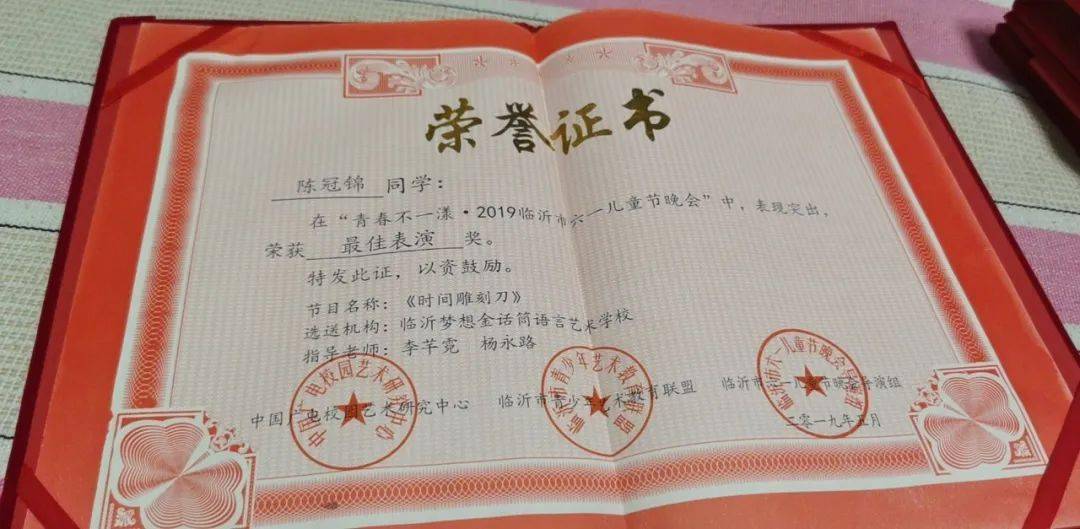 荣誉证书
陈冠锦 同学：
在“青春不一漾·2019临沂市六一儿童节晚会”中，表现突出，
荣获 最佳表演 奖。
特发此证，以资鼓励。
节目名称：《时间雕刻刀》
选送机构：临沂梦想金话筒语言艺术学校
指导老师：李芊霓 杨永路
中国广电校园艺术研究中心 临沂市青少年艺术教育联盟 临沂市六一儿童节晚会导演组
二零一九年五月
中国广电校园艺术研究中心
临沂市青少年艺术教育联盟
临沂市六一儿童节晚会